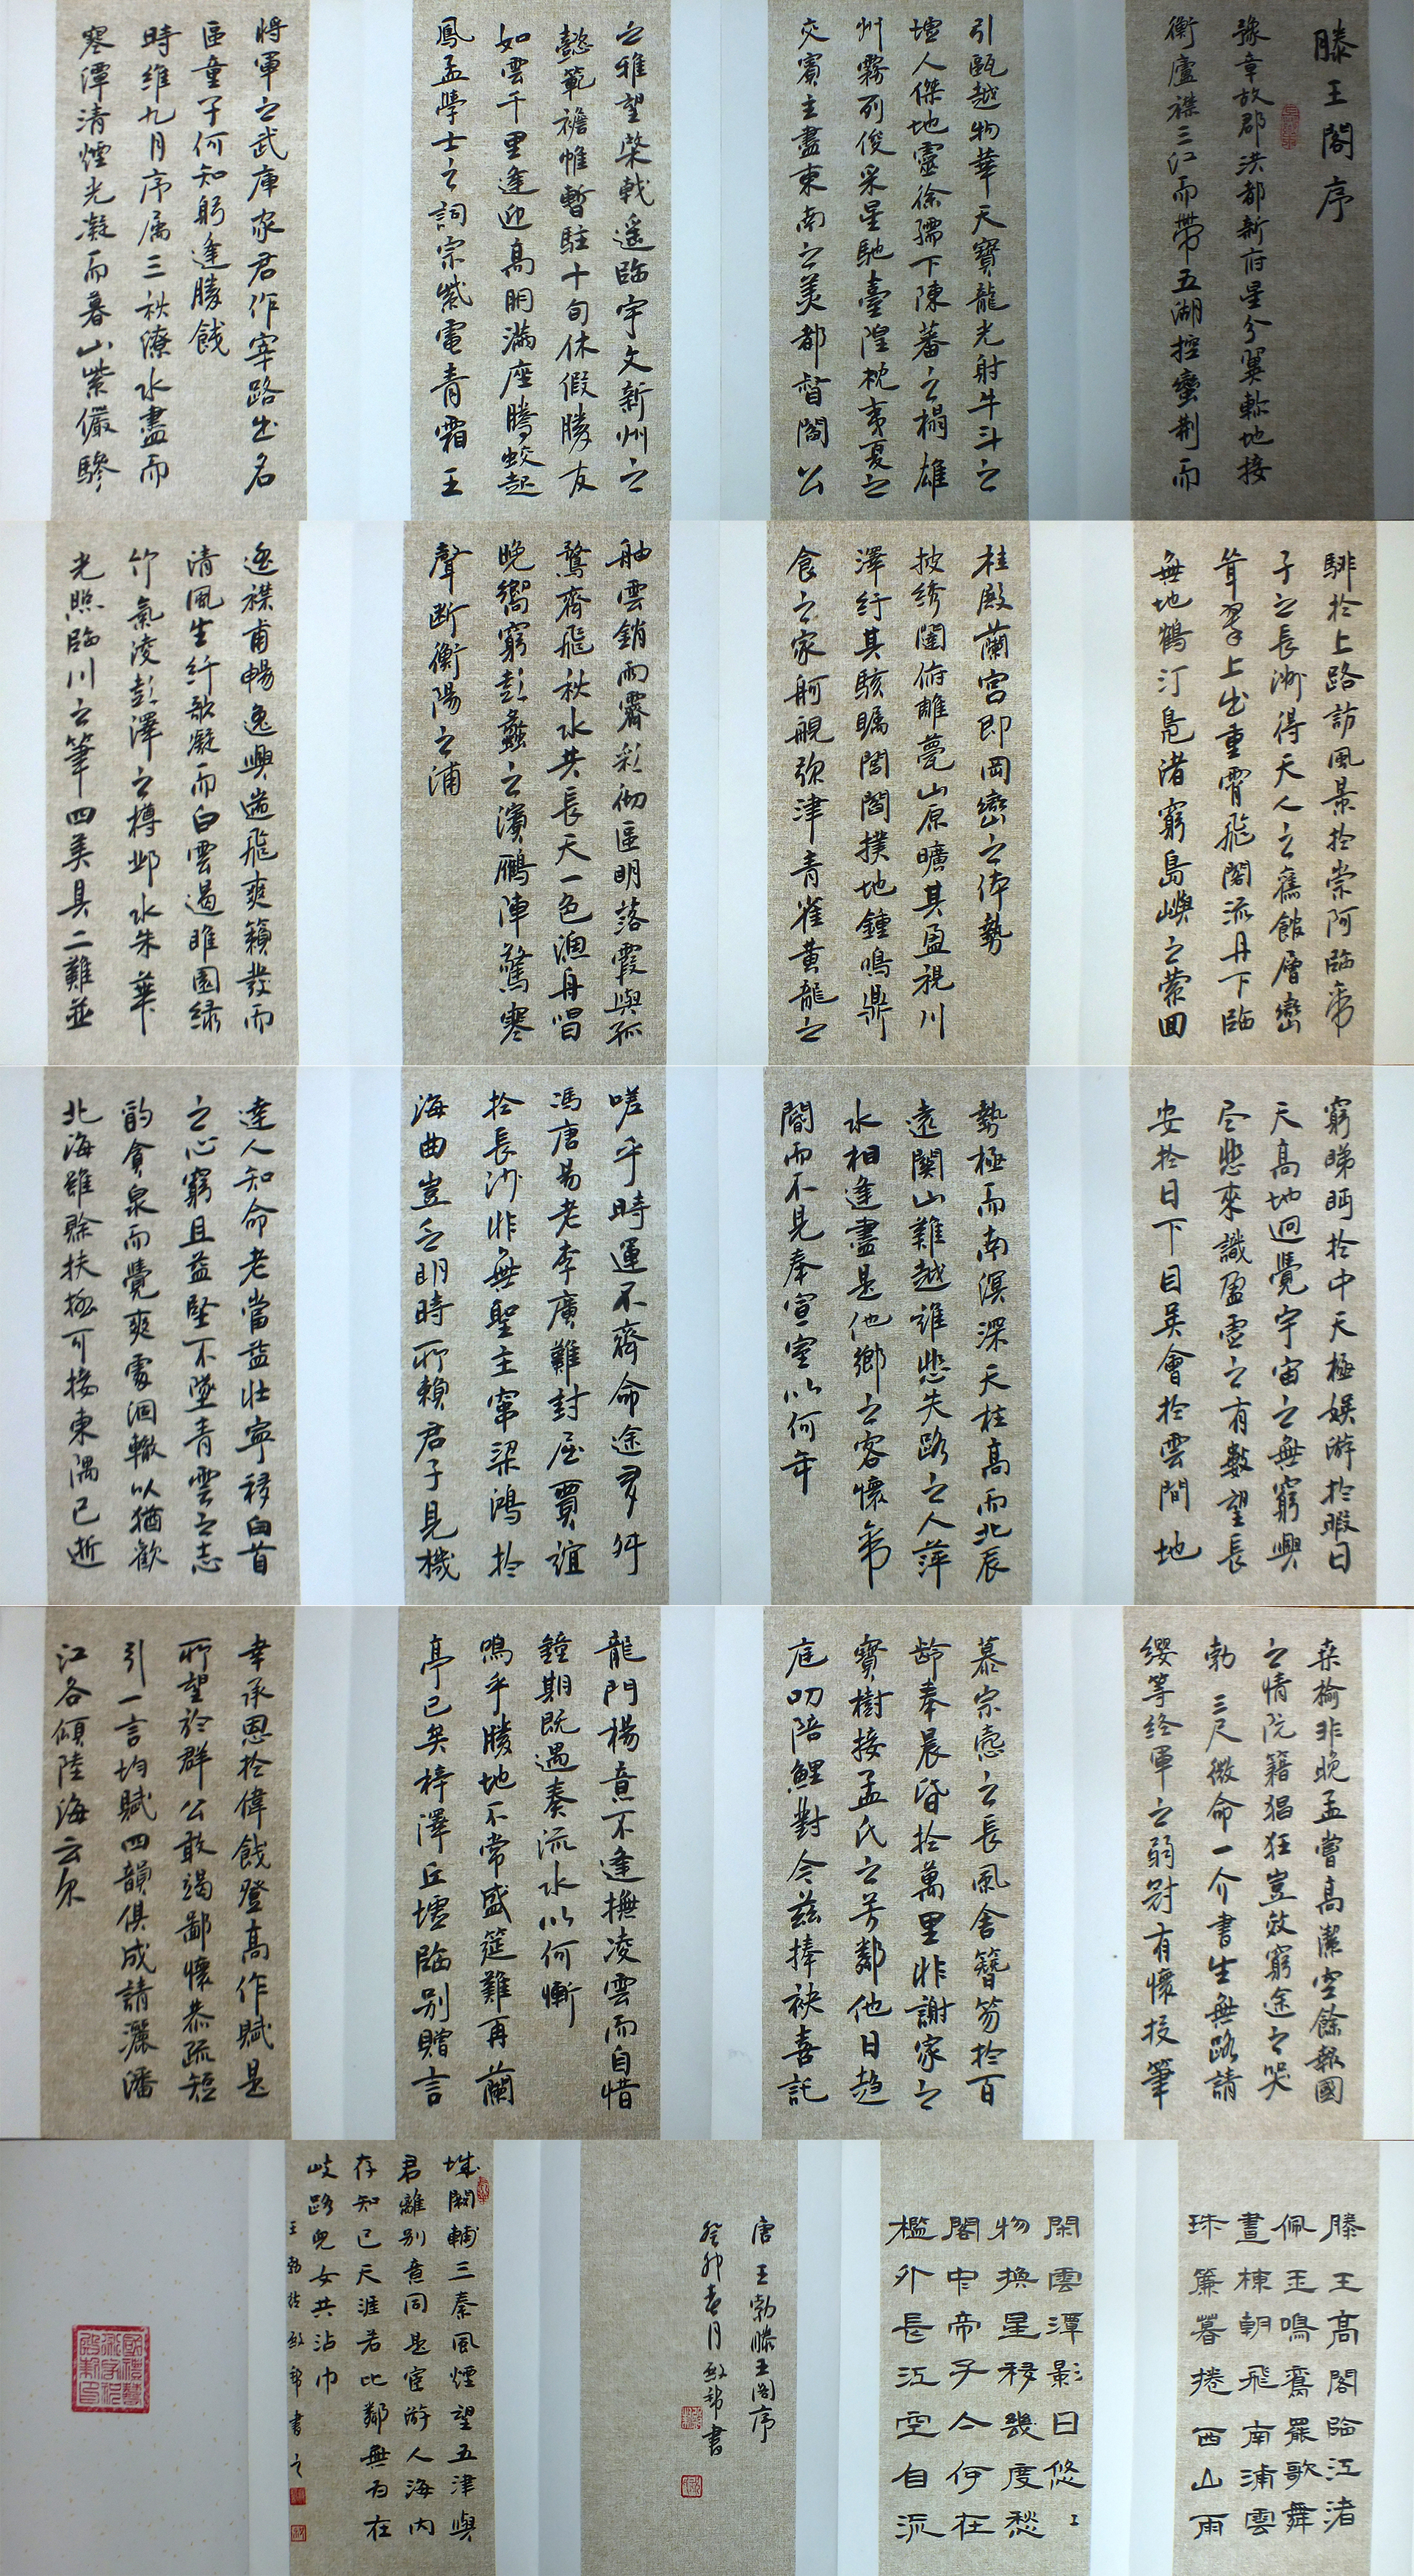 滕王閣序
豫章故郡洪都新府星分翼軫地接
衡廬襟三江而帶五湖控蠻荆而
引甌越物華天寶龍光射牛斗之
墟人傑地靈徐孺下陳蕃之榻雄
州霧列俊采星馳臺隍枕夷夏之
交賓主盡東南之美都督閻公
之雅望棨戟遥臨宇文新州之
懿範襜帷暫駐十旬休假勝友
如雲千里逢迎高朋滿座騰蛟起
鳳孟學士之詞宗紫電青霜王
將軍之武庫家君作宰路出名
區童子何知躬逢勝餞
時維九月序属三秋潦水盡而
寒潭清煙光凝而暮山紫儼驂
騑於上路訪風景於崇阿臨帝
子之長洲得天人之舊館層巒
聳翠上出重霄飛閣流丹下臨
無地鶴汀鳧渚窮島嶼之縈回
桂殿蘭宮即岡巒之体勢
披绣闥俯雕甍山原曠其盈視川
澤紆其駭矚閭閻撲地鍾鳴鼎
食之家舸艦弥津青雀黄龍之
舳雲銷雨霽彩彻區明落霞與孤
鶩齊飛秋水共長天一色漁舟唱
晚響窮彭蠡之濱鴈陣驚寒
聲断衡陽之浦
遥襟甫暢逸興遄飛爽籟發而
清風生纤歌凝而白雲遏睢園绿
竹氣凌彭澤之樽邺水朱華
光照臨川之筆四美具二難並
窮睇眄於中天極娱游於暇日
天高地迥覺宇宙之無窮興
尽悲來識盈虛之有數望長
安於日下目吴會於雲間地
勢極而南溟深天柱高而北辰
遠關山難越誰悲失路之人萍
水相逢盡是他鄉之客懷帝
閽而不見奉宣室以何年
嗟乎時運不齊命途多舛
馮唐易老李廣難封屈賈誼
於長沙非無聖主竄梁鴻於
海曲豈乏明時所賴君子見機
達人知命老當益壯寧移白首
之心窮且益堅不墜青雲之志
酌貪泉而覺爽處涸轍以猶歡
北海雖賒扶摇可接東隅已逝
桑榆非晚孟嘗高潔空餘報國
之情阮籍猖狂豈效窮途之哭
勃三尺微命一介書生無路請
纓等终軍之弱冠有懷投筆
慕宗愨之長風舍簪笏於百
龄奉晨昏於萬里非謝家之
寶樹接孟氏之芳鄰他日趋
庭叨陪鯉對今兹捧袂喜託
龍門楊意不逢撫凌雲而自惜
鐘期既遇奏流水以何慚
鳴乎勝地不常盛筵難再蘭
亭已矣梓澤丘墟臨别贈言
幸承恩於偉餞登高作賦是
所望於群公敢竭鄙懷恭疏短
引一言均賦四韻俱成請灑潘
江各傾陸海云尔
滕王高閣臨江渚
佩玉鳴鸞罷歌舞
畫棟朝飛南浦雲
珠簾暮捲西山雨
閑雲潭影日悠〻
物換星移幾度愁
閣中帝子今何在
檻外長江空自流
唐王勃滕王閣序
癸卯春月敬我書
城闕輔三秦風煙望五津與
君離别意同是宦游人海内
存知己天涯若比鄰無为在
歧路兒女共沾巾